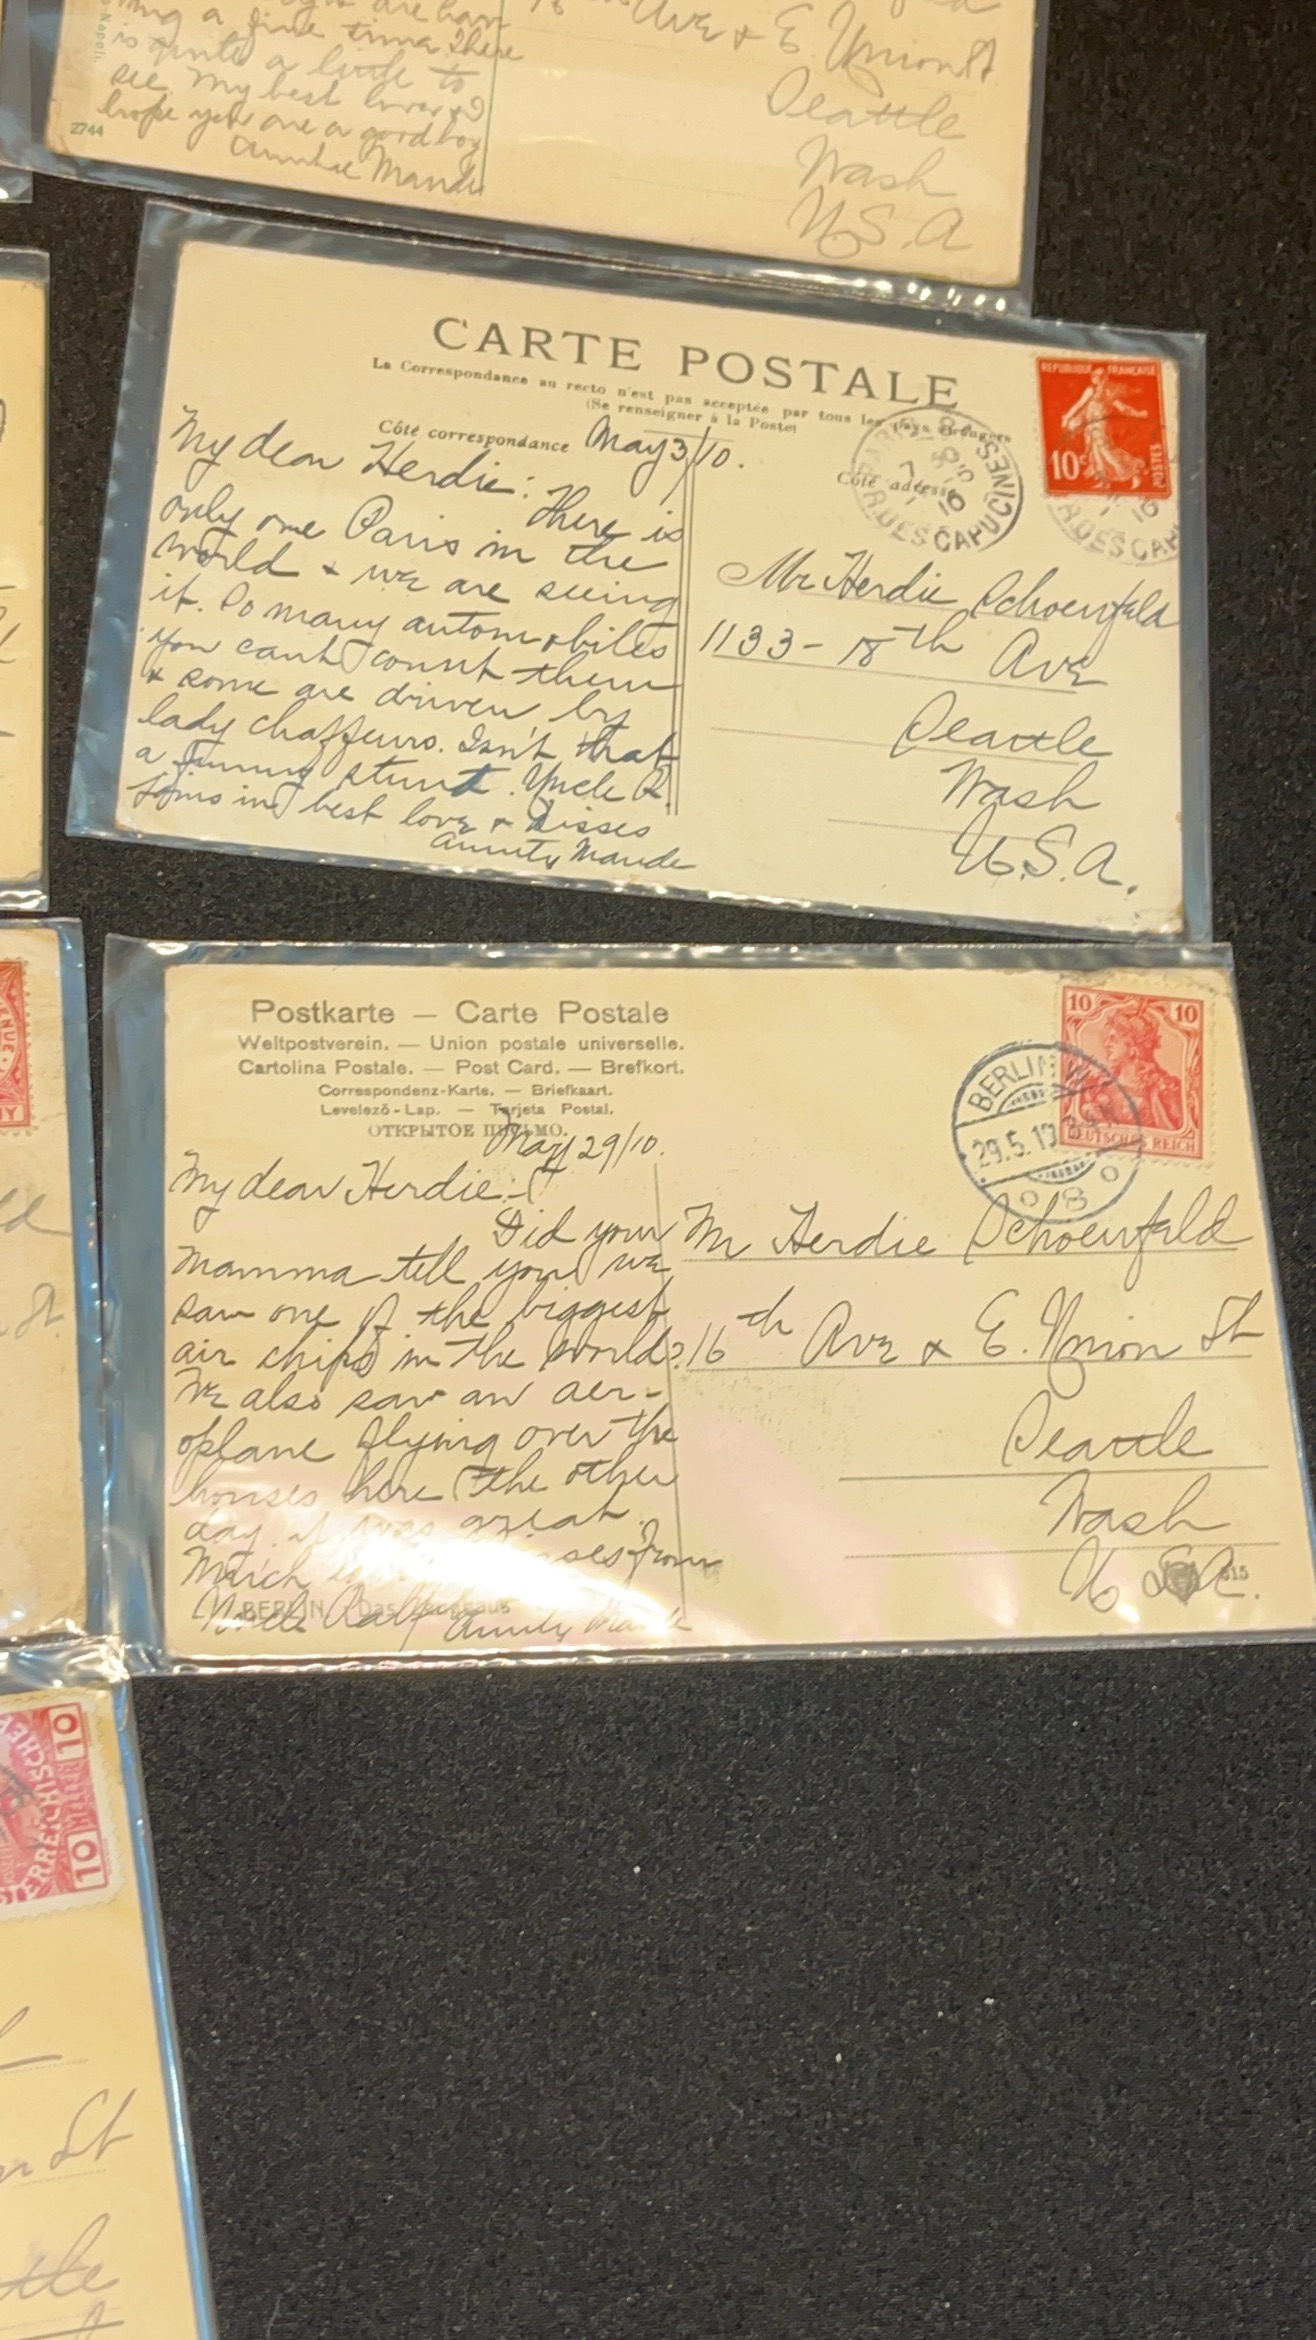 are hav
ing a fine time. There
is quite a little to
see. My best love &
hope you are a good boy
Maude
2744
Napoli.
Ave & E. Union St
Seattle
Wash
U.S.A
CARTE POSTALE
La Correspondance au recto n'est pas acceptée par tous les pays étrangers
(Se renseigner à la Poste)
Côté correspondance
May 3/10.
My dear Herdie:
There is
only one Paris in the
world & we are seeing
it. So many automobiles
you can't count them
& some are driven by
lady chaffeurs. Isn't that
a funny stunt. Uncle R.
joins in best love & kisses
Aunty Maude
Côté adresse
REPUBLIQUE FRANÇAISE
10c
POSTES
DES CAPUCINES
10
Mr Herdie Schoenfeld
1133 - 18th Ave
Seattle
Wash
U.S.A.
Postkarte — Carte Postale
Weltpostverein. — Union postale universelle.
Cartolina Postale. — Post Card. — Brefkort.
Correspondenz-Karte. — Briefkaart.
Levelező-Lap. — Tarjeta Postal.
ОТКРЫТОЕ ПИСЬМО.
May 29/10.
My dear Herdie:-
Did your
mamma tell you we
saw one of the biggest
air ships in the world?
We also saw an aer-
oplane flying over the
houses here the other
day it was great.
Much love kisses from
Uncle Ralf Aunty Maude
BERLIN Das
10 10
DEUTSCHES REICH
BERLIN W.
29.5.10
8
Mr Herdie Schoenfeld
16th Ave & E. Union St
Seattle
Wash
U.S.A.
515
ld
St.
10
10
HELLER
St
ttle